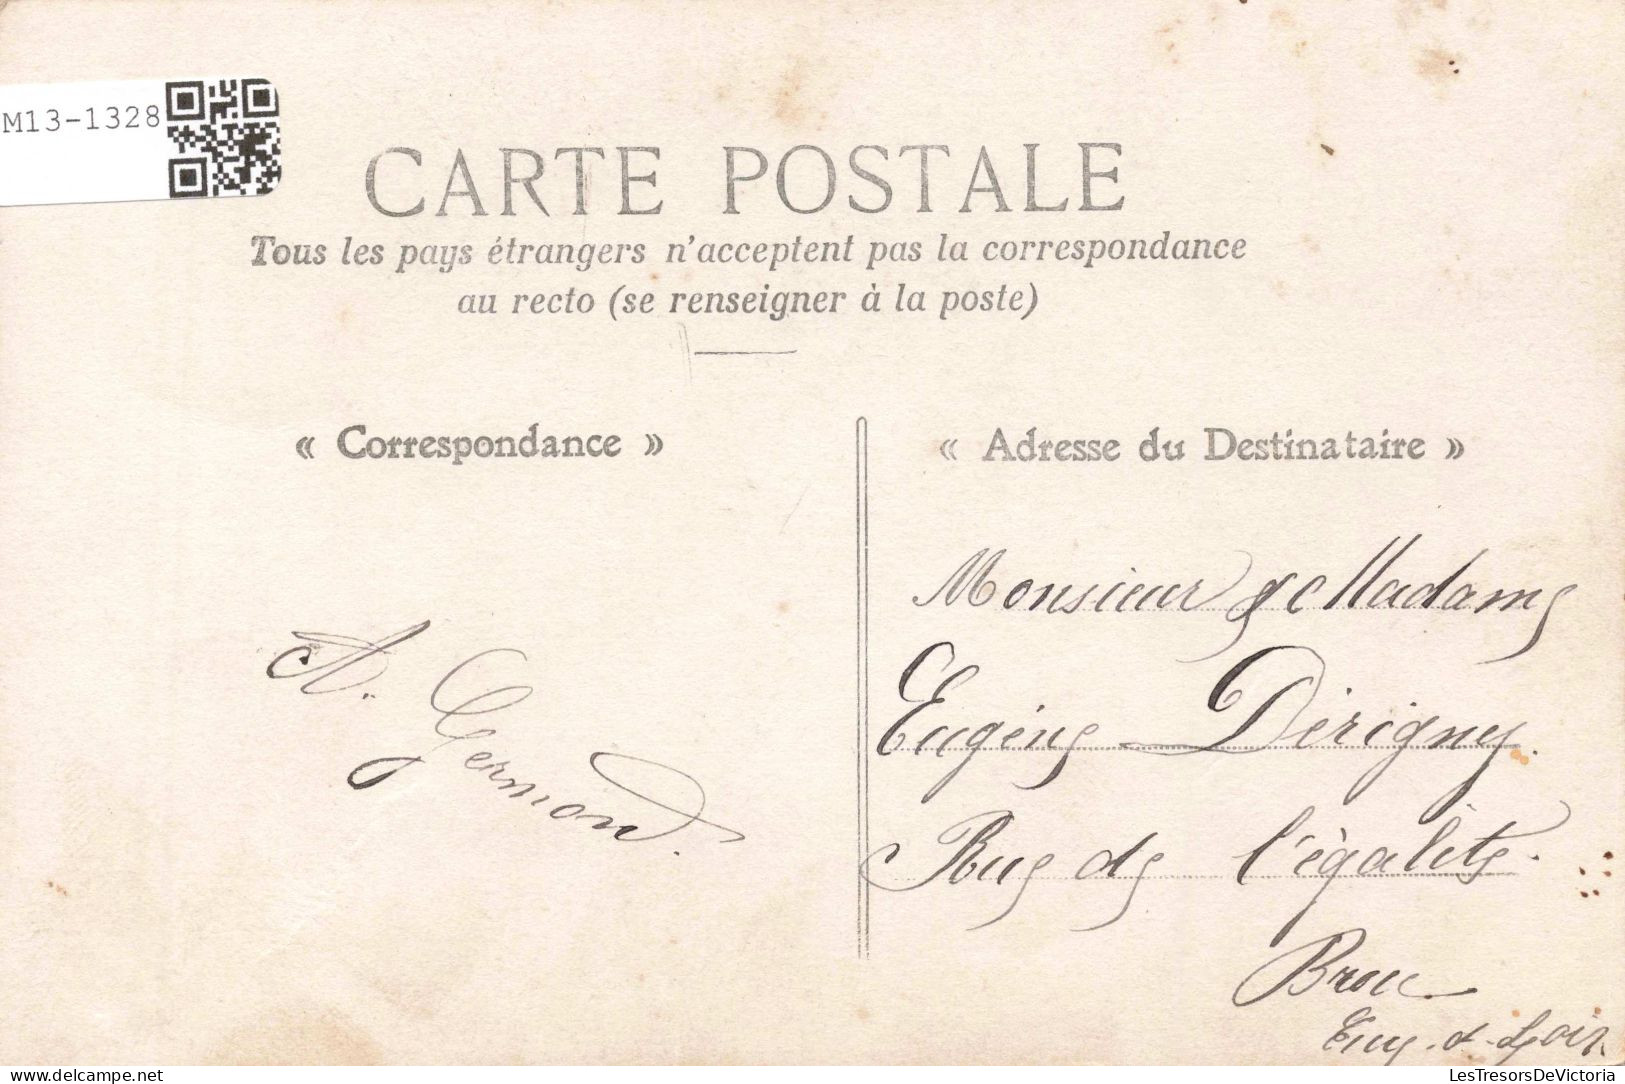 M13-1328
CARTE POSTALE
Tous les pays étrangers n'acceptent pas la correspondance
au recto (se renseigner à la poste)
« Correspondance »
A. Germond.
« Adresse du Destinataire »
Monsieur & Madame
Eugène Dérigny.
Rue de l'égalité.
Brou
Eure-et-Loir.
LesTresorsDeVictoria